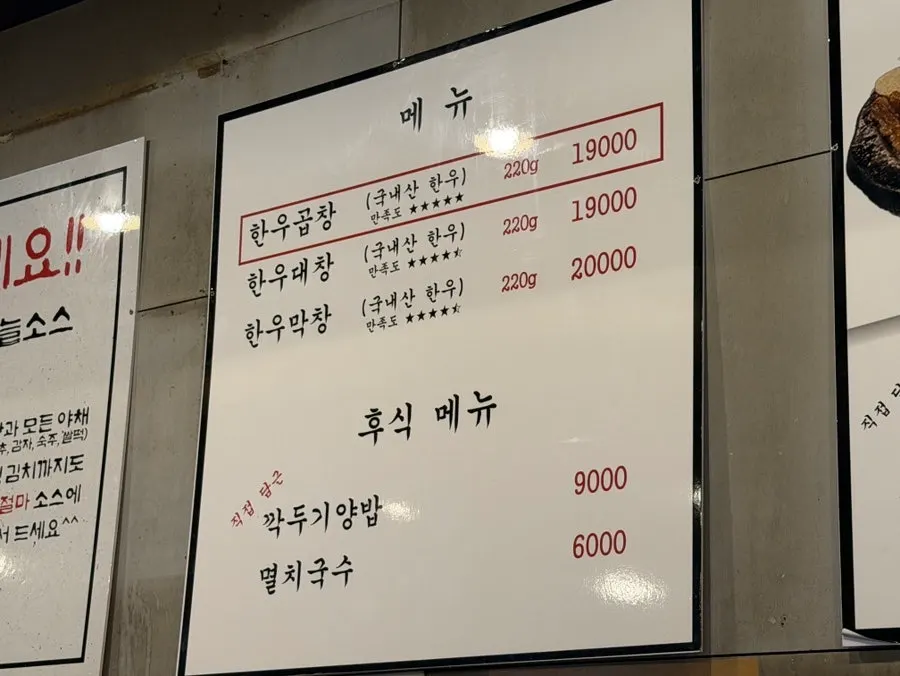 메 뉴
한우곱창 (국내산 한우) 220g 19000
만족도 ★★★★★
한우대창 (국내산 한우) 220g 19000
만족도 ★★★★⯪
한우막창 (국내산 한우) 220g 20000
만족도 ★★★★⯪
후식 메뉴
직접 담근
깍두기양밥 9000
멸치국수 6000
요!!
늘소스
과 모든 야채
감자, 숙주, 쌀떡)
김치까지도
절마 소스에
서 드세요^^
직접